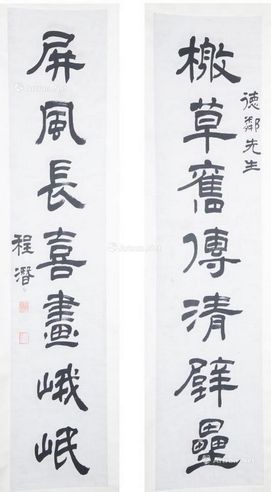 檄草舊傳清壁壘
德鄰先生
屏風長喜畫峨岷
程潛